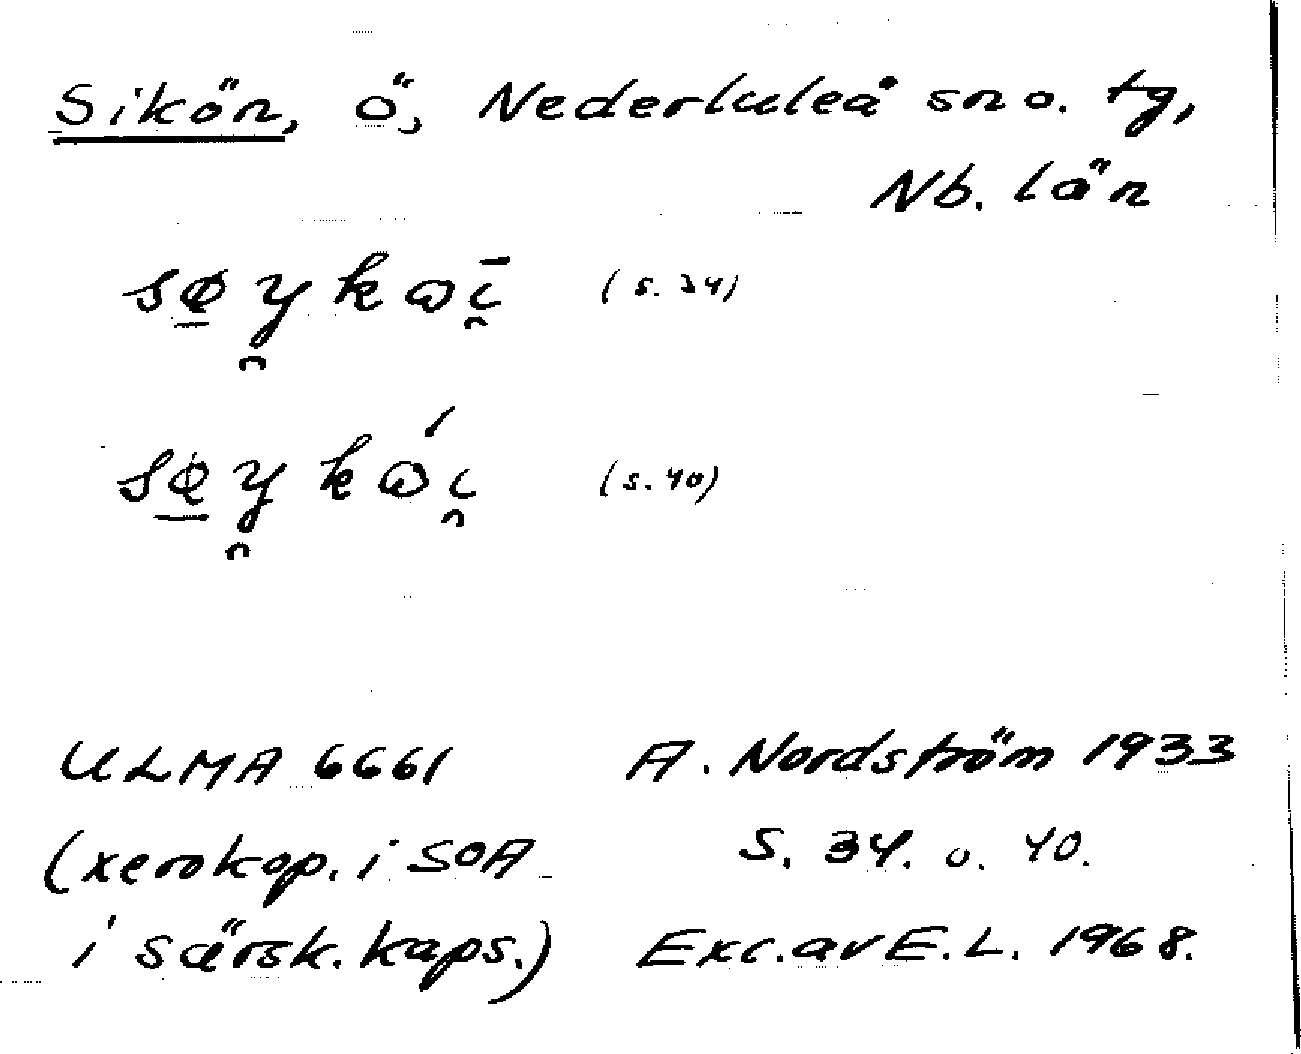 Sikön, ö, Nederluleå sn o. tg,
Nb. län
sø̲y̯kɷı̯̄ (s. 34)
sø̲y̯kɷ́ı̯ (s. 40)
ULMA 6661 A. Nordström 1933
(xerokop. i SOA S. 34. o. 40.
i särsk. kaps.) Exc. av E. L. 1968.